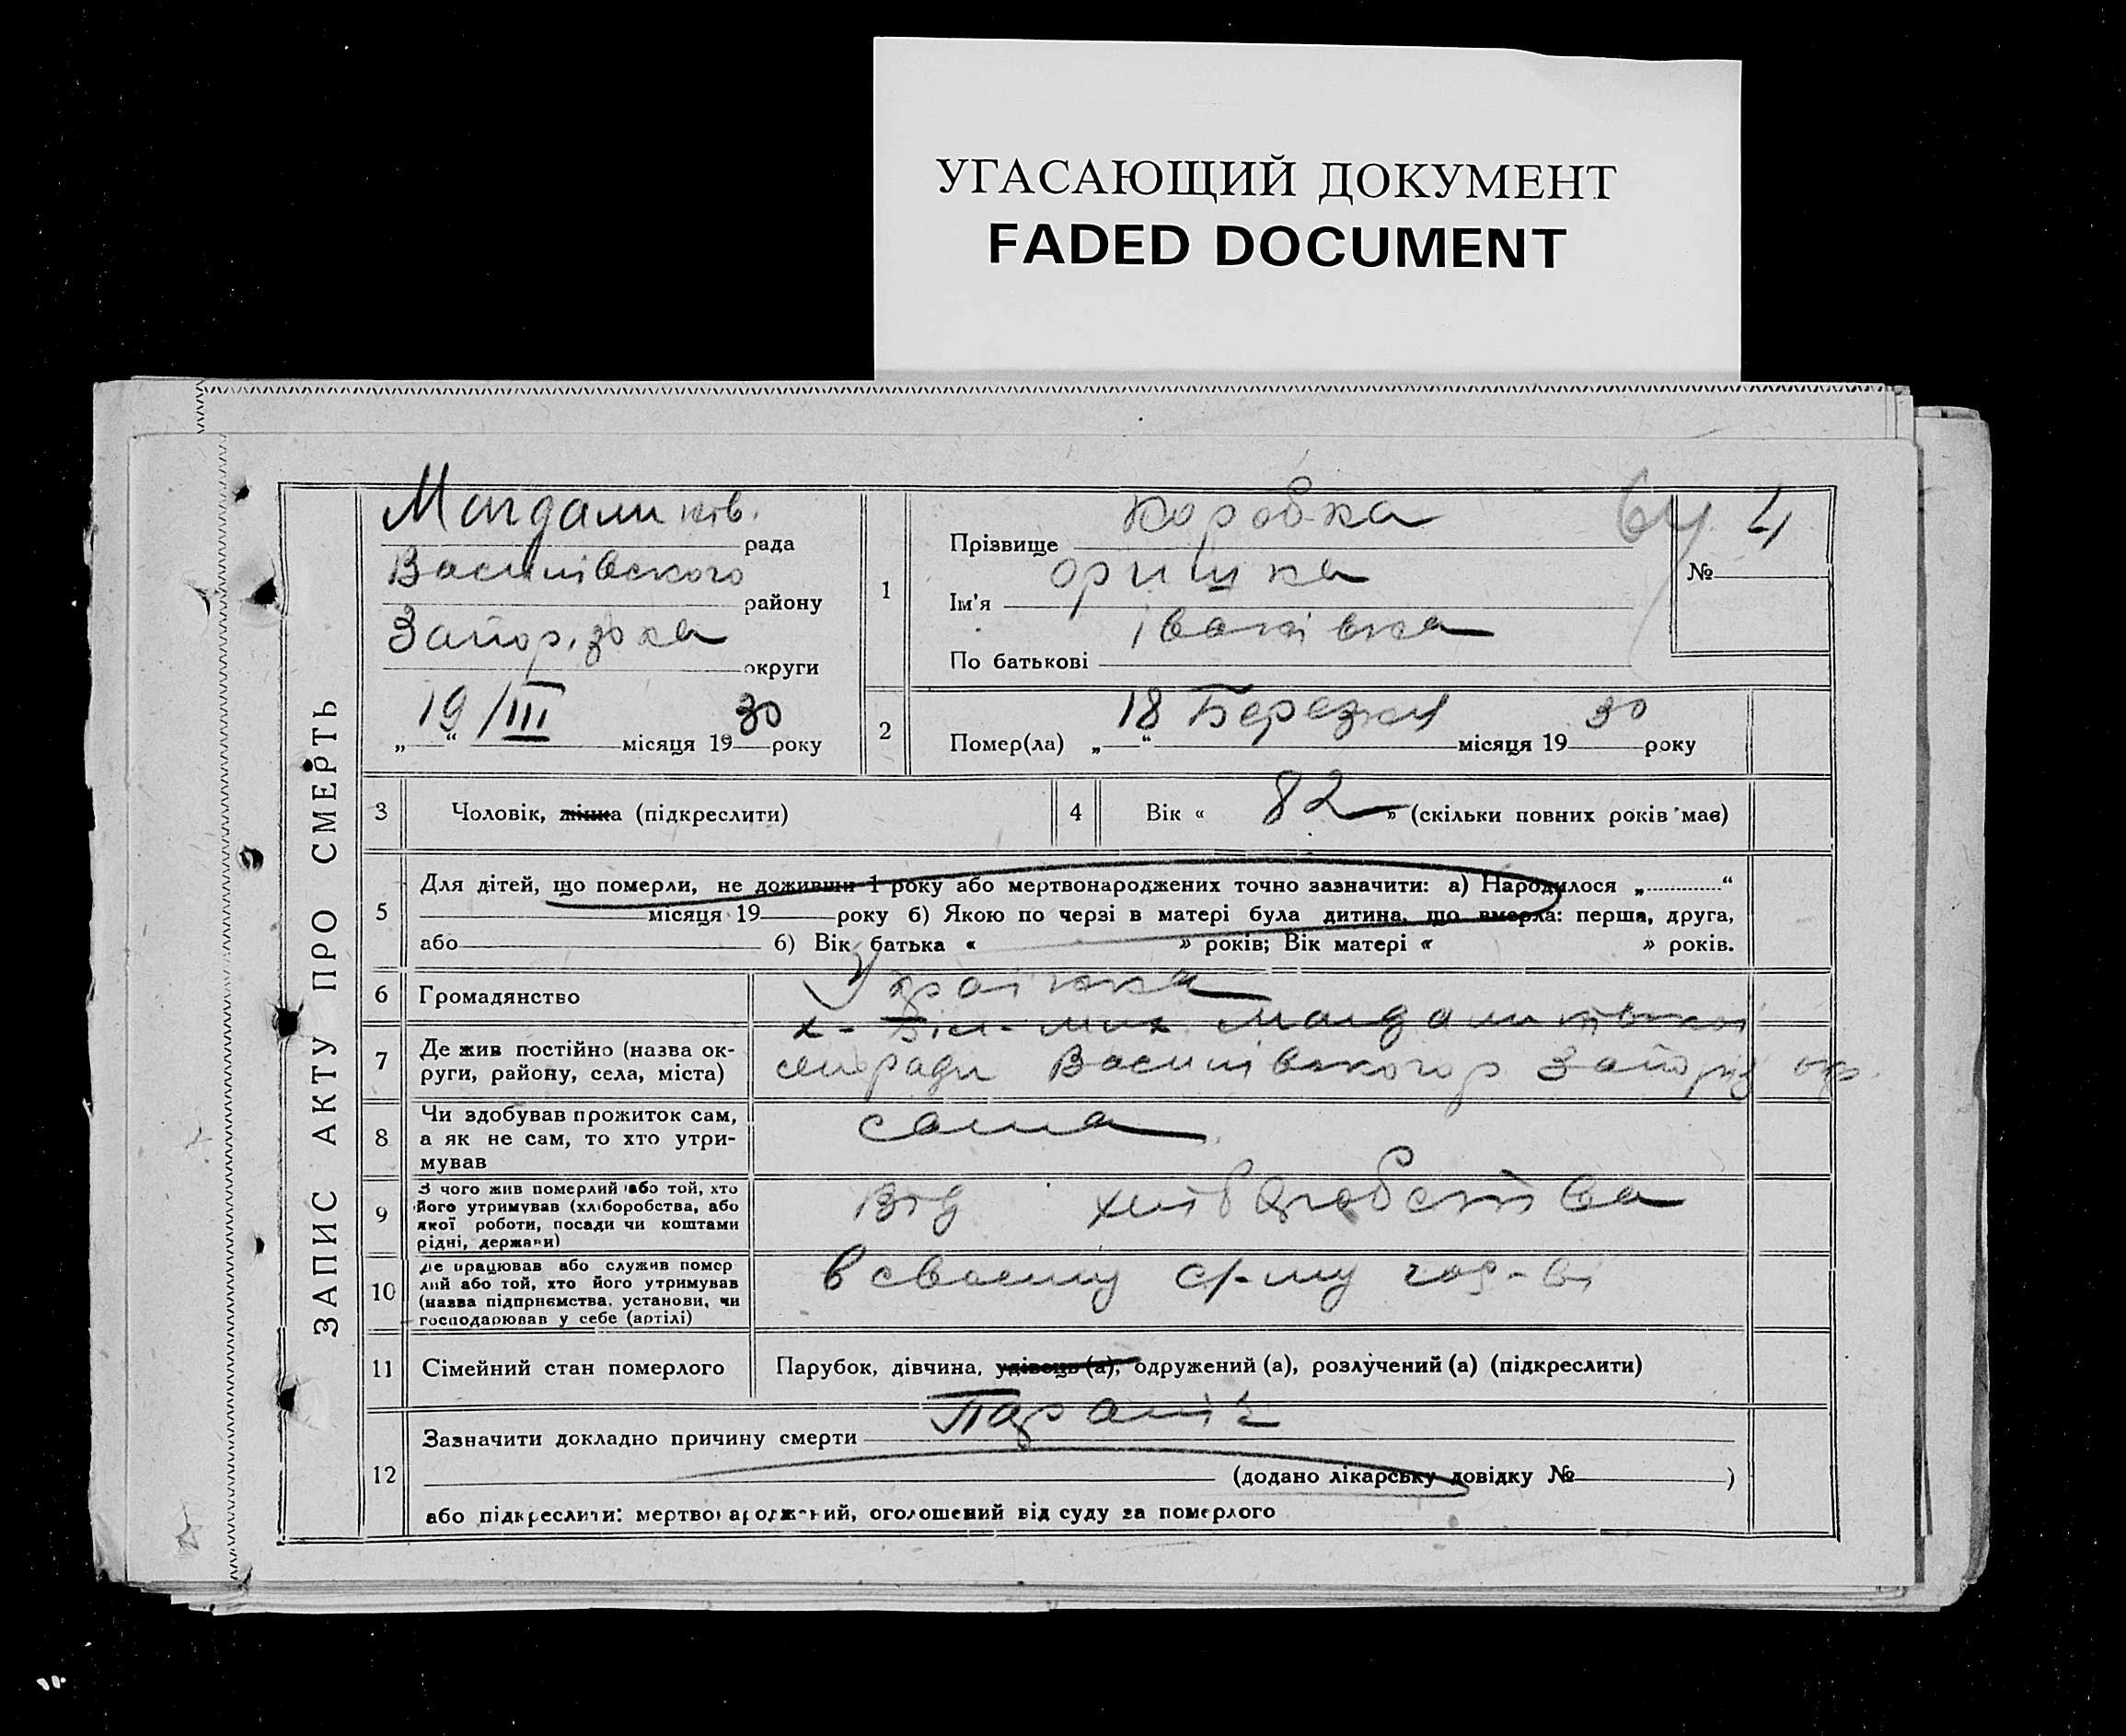 УГАСАЮЩИЙ ДОКУМЕНТ
FADED DOCUMENT
ЗАПИС АКТУ ПРО СМЕРТЬ
Магдалинів.
рада
Василівского
району
Запорізька
округи
„19“ /III місяця 1930 року
1
Прізвище Коробка
Ім'я Оришка
По батькові Іванівна
№ 4
64
2
Помер(ла) „18“ Березня місяця 1930 року
3
Чоловік, жінка (підкреслити)
4
Вік « 82 » (скільки повних років має)
5
Для дітей, що померли, не доживши 1 року або мертвонароджених точно зазначити: а) Народилося „ “
місяця 19 року б) Якою по черзі в матері була дитина, що вмерла: перша, друга,
або б) Вік батька « » років; Вік матері « » років.
6
Громадянство
Українка
7
Де жив постійно (назва ок-
руги, району, села, міста)
Магдалинівської
сільради Василівського р Запоріз окр.
8
Чи здобував прожиток сам,
а як не сам, то хто утри-
мував
сама
9
З чого жив померлий або той, хто
його утримував (хліборобства, або
якої роботи, посади чи коштами
рідні, держави)
Від хліборобства
10
Де працював або служив помер
лий або той, хто його утримував
(назва підприємства, установи, чи
господарював у себе (артілі)
в своєму с/-му гос-ві
11
Сімейний стан померлого
Парубок, дівчина, удівець (а), одружений (а), розлучений (а) (підкреслити)
12
Зазначити докладно причину смерти Параліч
(додано лікарську довідку № )
або підкреслити: мертвонароджений, оголошений від суду за померлого